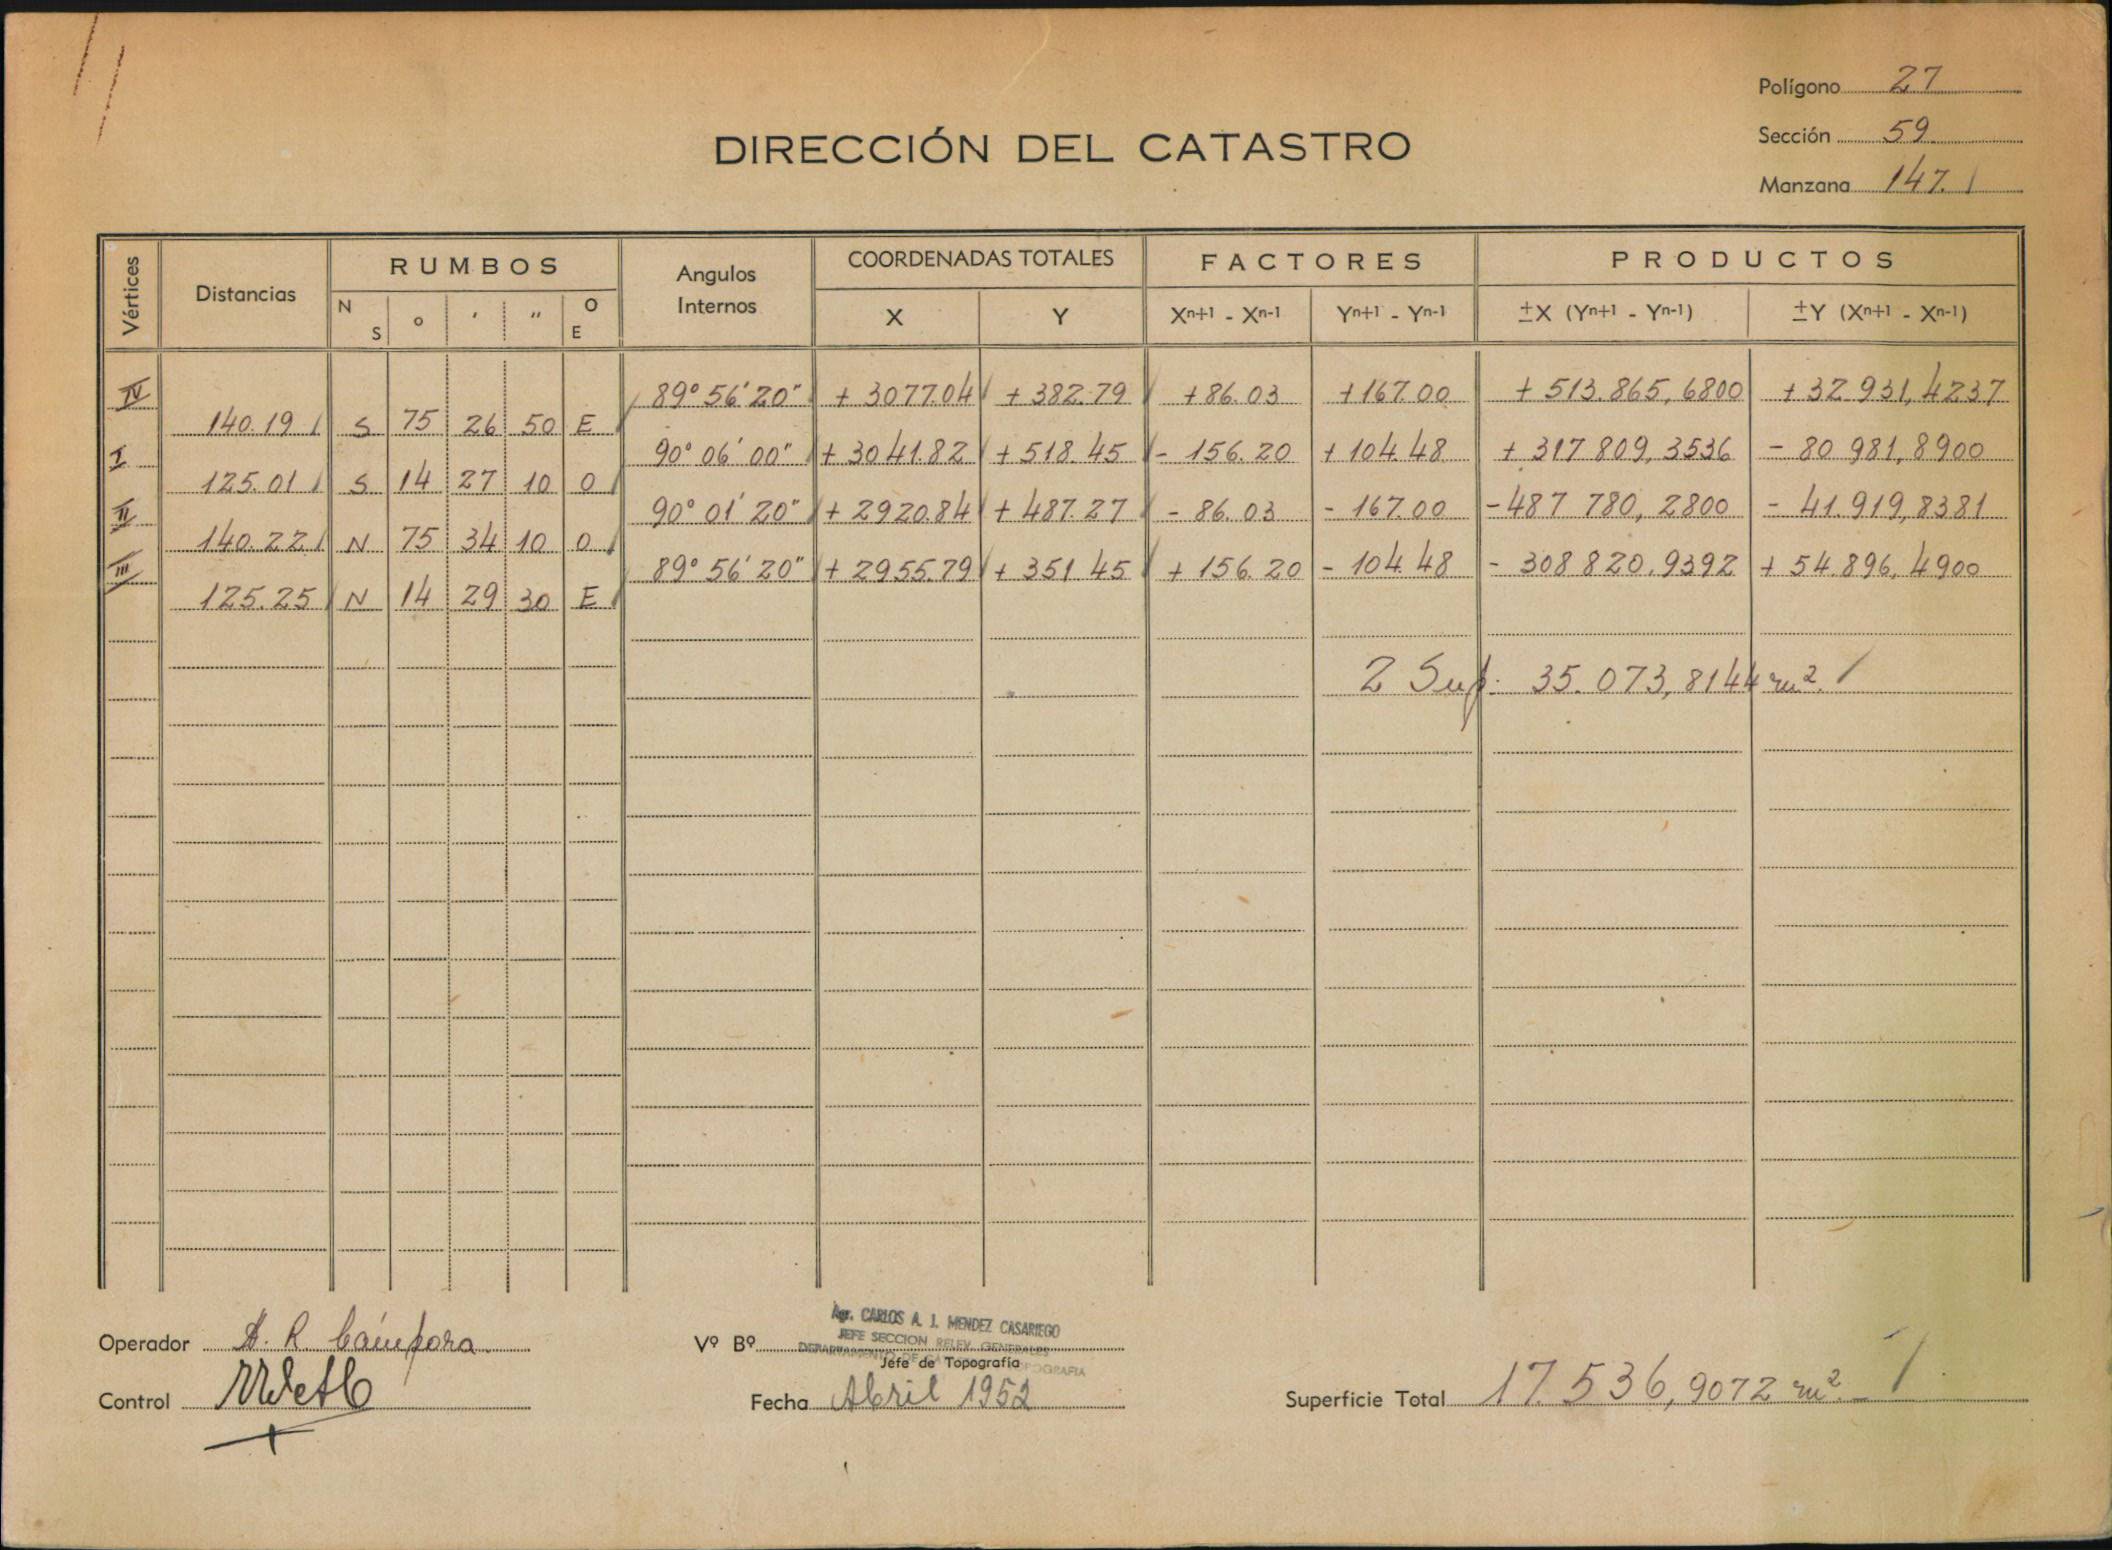 Polígono 27
DIRECCIÓN DEL CATASTRO
Sección 59
Manzana 147.
Vértices Distancias RUMBOS Angulos Internos COORDENADAS TOTALES FACTORES PRODUCTOS
N S o ' " O E X Y Xn+1 - Xn-1 Yn+1 - Yn-1 ±X (Yn+1 - Yn-1) ±Y (Xn+1 - Xn-1)
IV 89° 56' 20" + 3077.04 + 382.79 +86.03 +167.00 + 513.865,6800 + 32 931,4237
140.19 S 75 26 50 E
I 90° 06' 00" + 3041.82 + 518.45 - 156.20 + 104.48 + 317 809,3536 - 80 981,8900
125.01 S 14 27 10 O
II 90° 01' 20" + 2920.84 + 487.27 - 86.03 - 167.00 - 487 780,2800 - 41.919,8381
140.22 N 75 34 10 O
III 89° 56' 20" + 2955.79 + 351.45 + 156.20 - 104.48 - 308 820.9392 + 54.896,4900
125.25 N 14 29 30 E
2 Sup. 35.073,8144 m².
Operador A. R. Cámpora
Vº Bº
Agr. CARLOS A. J. MENDEZ CASARIEGO
JEFE SECCION RELEV. GENERALES
Jefe de Topografía
Control
Fecha Abril 1952
Superficie Total 17.536,9072 m².